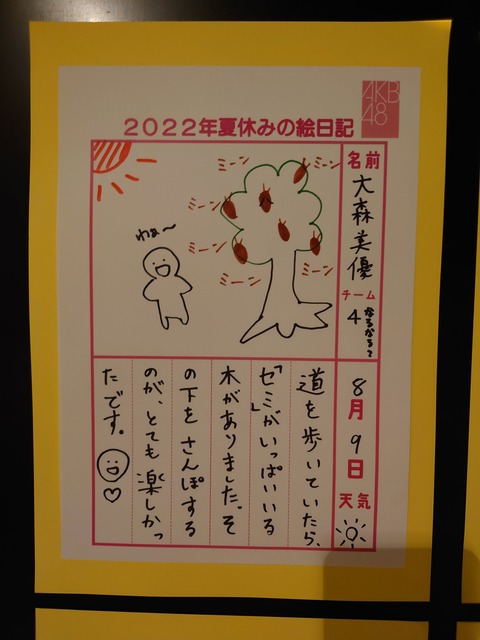 AKB
48
2022年夏休みの絵日記
名前
大森美優
チーム
4
なるなるって
8月9日
天気
ミーン
ミーン
ミーン
ミーン
ミーン
ミーン
わぁ〜
道を歩いていたら、
「セミ」がいっぱいいる
木がありました。そ
の下をさんぽする
のが、とても楽しかっ
たです。